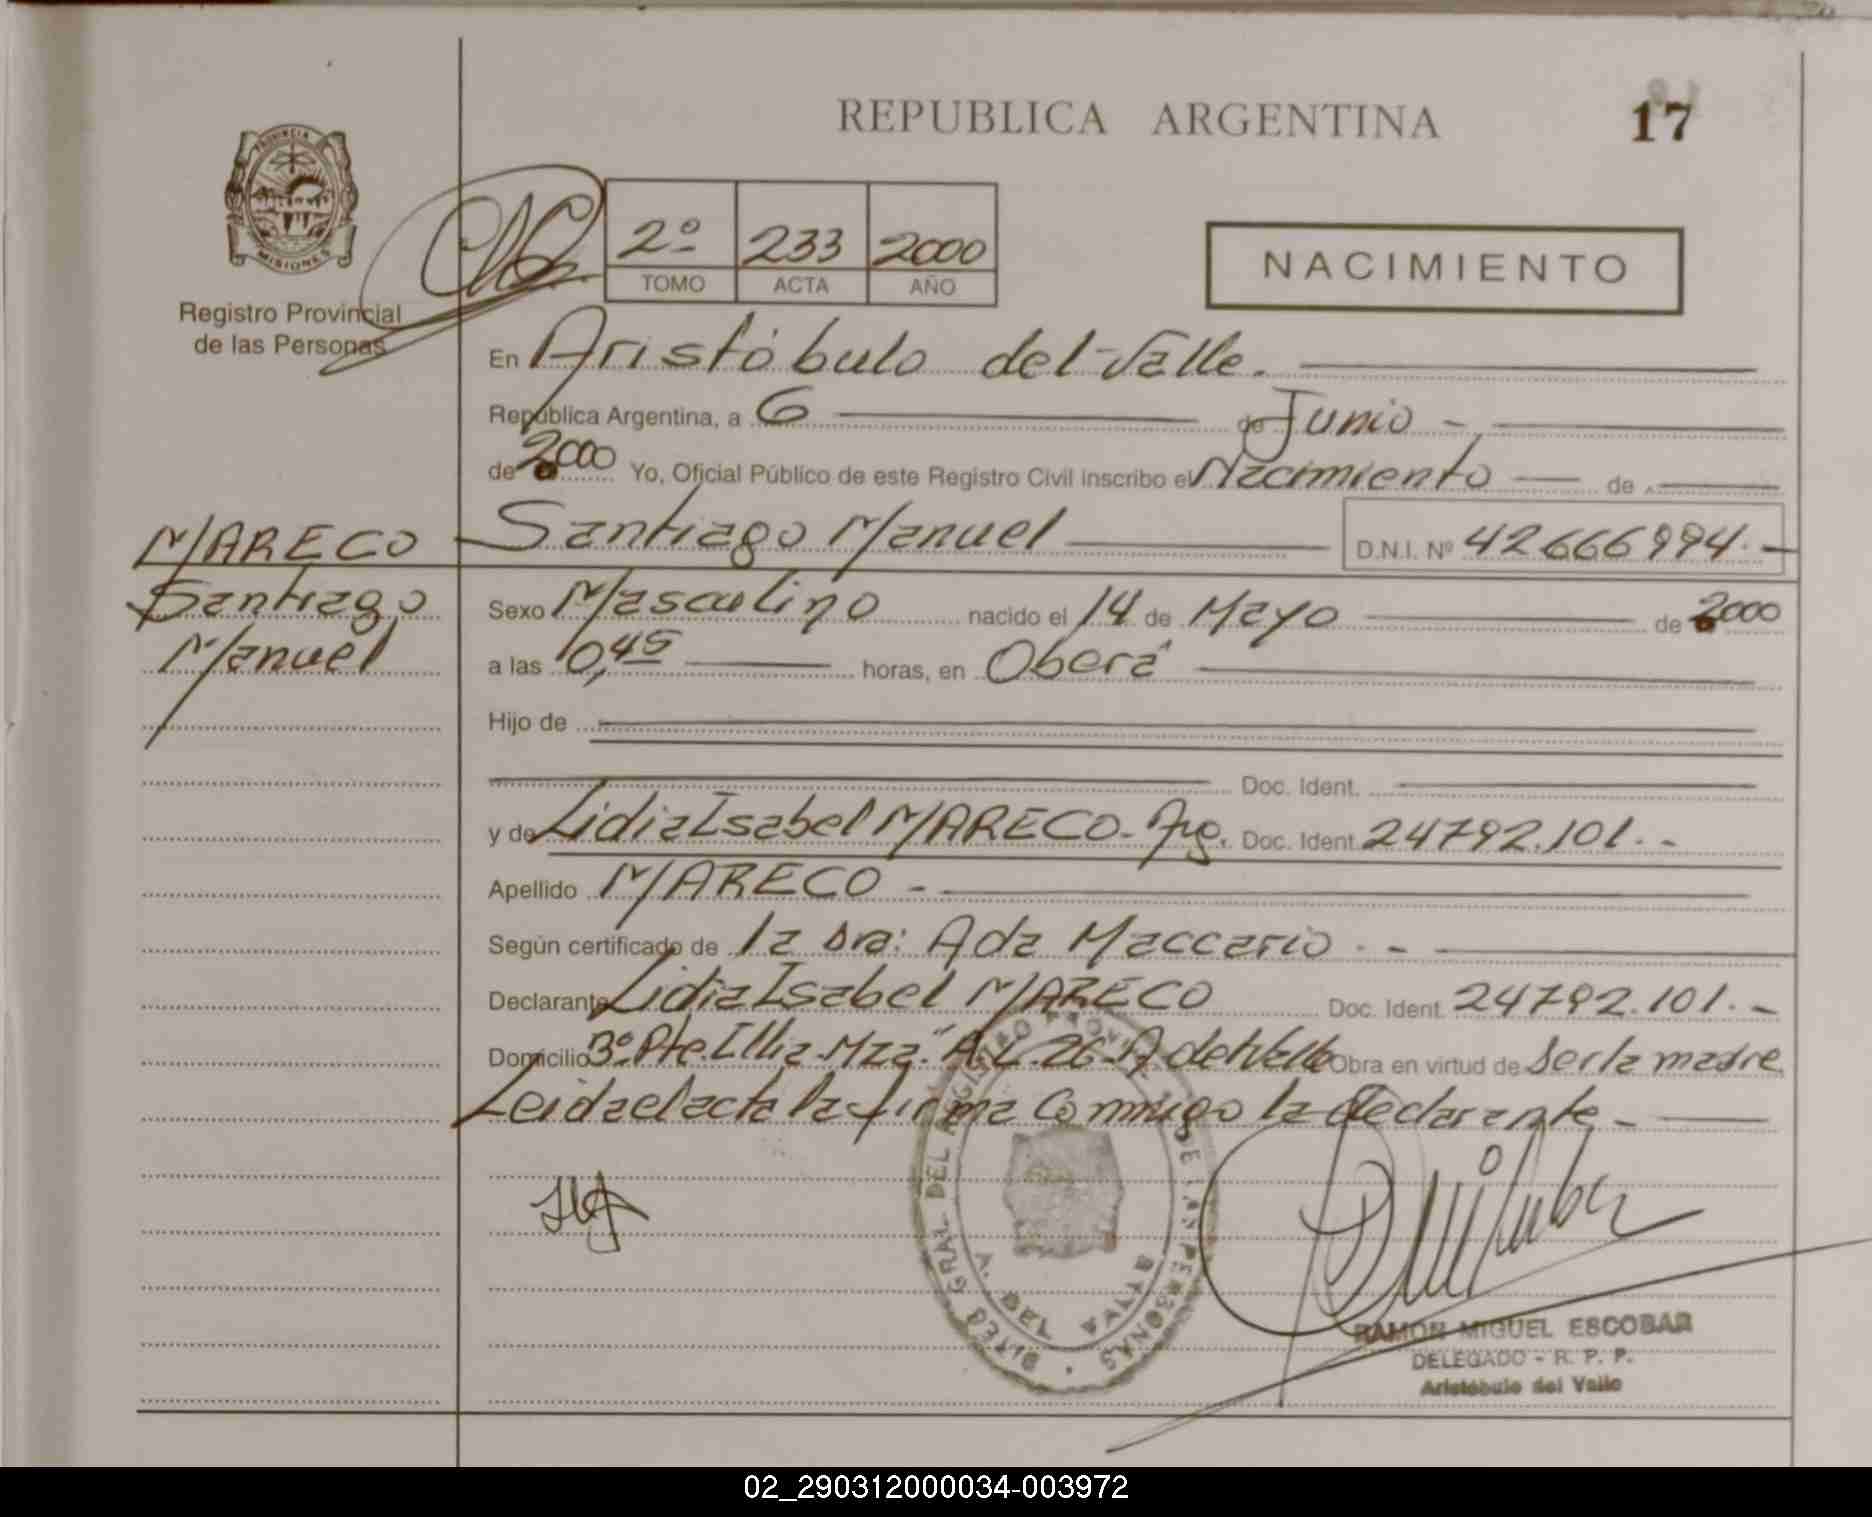 REPUBLICA ARGENTINA
17
PROVINCIA
MISIONES
Registro Provincial
de las Personas
2º 233 2000
TOMO ACTA AÑO
NACIMIENTO
En Aristóbulo del Valle.
República Argentina, a 6 de Junio -
de 2000 Yo, Oficial Público de este Registro Civil inscribo el Nacimiento de
MARECO Santiago Manuel D.N.I. Nº 42666994.-
Santiago Sexo Masculino nacido el 14 de Mayo de 2000
Manuel a las 0,45 horas, en Oberá
Hijo de
Doc. Ident.
y de Lidia Isabel MARECO- Arg. Doc. Ident. 24792.101.-
Apellido MARECO -
Según certificado de la Dra: Ada Maccario.-
Declarante Lidia Isabel MARECO Doc. Ident. 24792.101.-
Domicilio Bº. Pte. Illia-Mza. "A" L.26-A del Valle Obra en virtud de ser la madre
Leida el acta la firma conmigo la declarante-
REGISTRO DE LAS PERSONAS
A. DEL VALLE
RAMON MIGUEL ESCOBAR
DELEGADO - R. P. P.
Aristóbulo del Valle
02_290312000034-003972